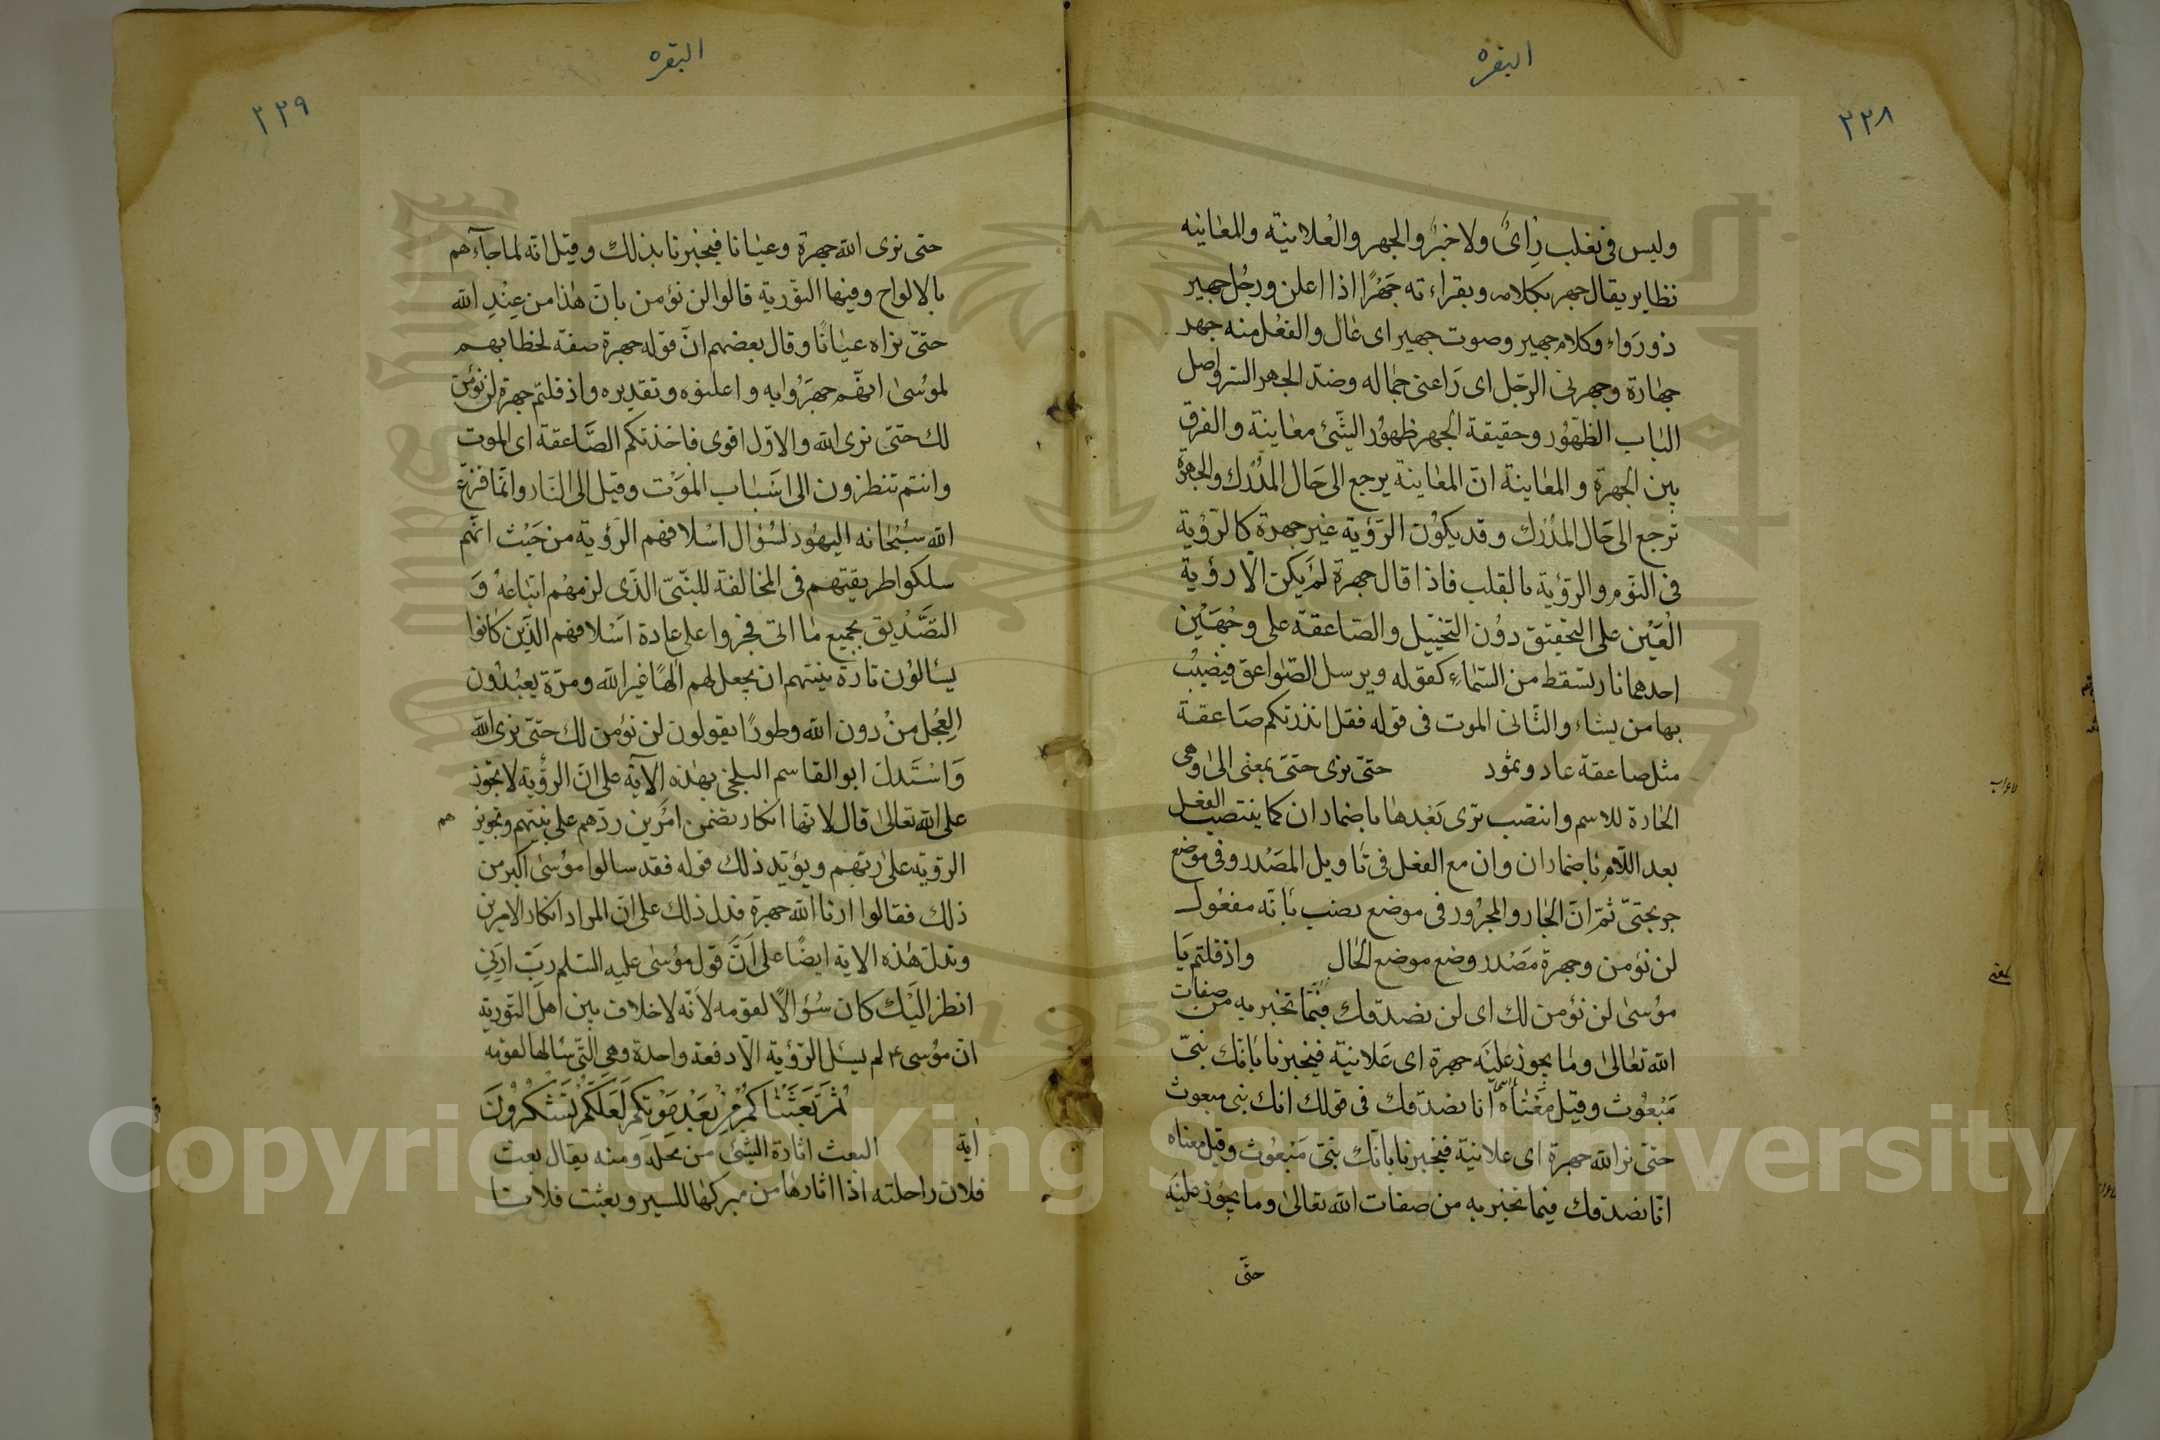 البقره
٢٢٨
وليس في تغلب رأى ولا خبر والجهر والعلانية والمعاينه
نظاير يقال جهر بكلامه وبقراءته جهرًا اذا اعلن ورجل جهير
ذو رواء وكلام جهير وصوت جهير اى عال والفعل منه جهر
جهارة وجهرنى الرجل اى راعنى جماله وضد الجهر السر واصل
الباب الظهور وحقيقة الجهر ظهور الشئ معاينة والفرق
بين الجهرة والمعاينة ان المعاينة يرجع الى حال المدرك والجهرة
ترجع الى حال المدرك وقد يكون الرؤية غير جهرة كالرؤية
فى النوم والرؤية بالقلب فاذا قال جهرة لم يكن الا رؤية
العين على التحقيق دون التخييل والصاعقة على وجهين
احدهما نار تسقط من السماء كقوله ويرسل الصواعق فيصيب
بها من يشاء والثانى الموت فى قوله فقل انذرتكم صاعقة
مثل صاعقة عاد وثمود حتى نرى حتى بمعنى الى وهى
الجارة للاسم وانتصب نرى بعدها باضمار ان كما ينتصب الفعل
بعد اللام باضمار ان وان مع الفعل فى تاويل المصدر وفى موضع
جر بحتى ثم ان الجار والمجرور فى موضع نصب بانه مفعول
لن نؤمن وجهرة مصدر وضع موضع الحال واذ قلتم يا
موسى لن نؤمن لك اى لن نصدقك فيما تخبر به من صفات
الله تعالى وما يجوز عليه جهرة اى علانية فيخبرنا بانك نبى
مبعوث وقيل معناه انا نصدقك فى قولك انك نبى مبعوث
حتى نر الله جهرة اى علانية فيخبرنا بانك نبى مبعوث وقيل معناه
انا نصدقك فيما تخبر به من صفات الله تعالى وما يجوز عليه
حتى
البقره
٢٢٩
حتى نرى الله جهرة وعيانا فيخبرنا بذلك وقيل انه لما جآءهم
بالالواح وفيها التورية قالوا لن نؤمن بان هذا من عند الله
حتى نراه عيانًا وقال بعضهم ان قوله جهرة صفة لخطابهم
لموسى انهم جهروا به واعلنوه وتقديره واذ قلتم جهرة لن نؤمن
لك حتى نرى الله والاول اقوى فاخذتكم الصاعقة اى الموت
وانتم تنظرون الى اسباب الموت وقيل الى النار وانما قرع
الله سبحانه اليهود لسؤال اسلافهم الرؤية من حيث انهم
سلكوا طريقتهم فى المخالفة للنبى الذى لزمهم اتباعه و
التصديق بجميع ما اتى فجروا على عادة اسلافهم الذين كانوا
يسالون تارة نبيهم ان يجعل لهم الهًا غير الله ومرة يعبدون
العجل من دون الله وطورًا يقولون لن نؤمن لك حتى نرى الله
واستدل ابو القاسم البلخى بهذه الآية على ان الرؤية لا تجوز
على الله تعالى قال لانها انكار تضمن امرين ردهم على نبيهم وتجويزهم
الرؤية على ربهم ويؤيد ذلك قوله فقد سالوا موسى اكبر من
ذلك فقالوا ارنا الله جهرة فدل ذلك على ان المراد انكار الامرين
وتدل هذه الاية ايضًا على ان قول موسى عليه السلم رب ارنى
انظر اليك كان سؤالًا لقومه لانه لا خلاف بين اهل التورية
ان موسى ع لم يسئل الرؤية الا دفعة واحدة وهى التى سالها لقومه
ثم بعثناكم من بعد موتكم لعلكم تشكرون
اية البعث اثارة الشئ من محله ومنه يقال بعث
فلان راحلته اذا اثارها من مبركها للسير وبعثت فلانا
Copyright © King Saud University
King Saud University
1957